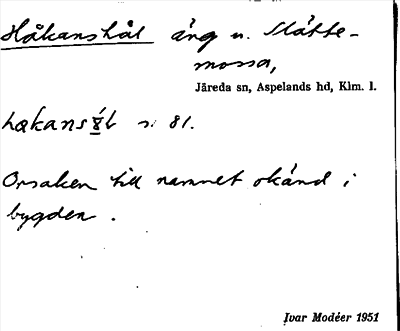 Håkanshål äng u. Slätte-
mossa,
Järeda sn, Aspelands hd, Klm. l.
s. 81.
Orsaken till namnet okänd i
bygden .
Ivar Modéer 1951